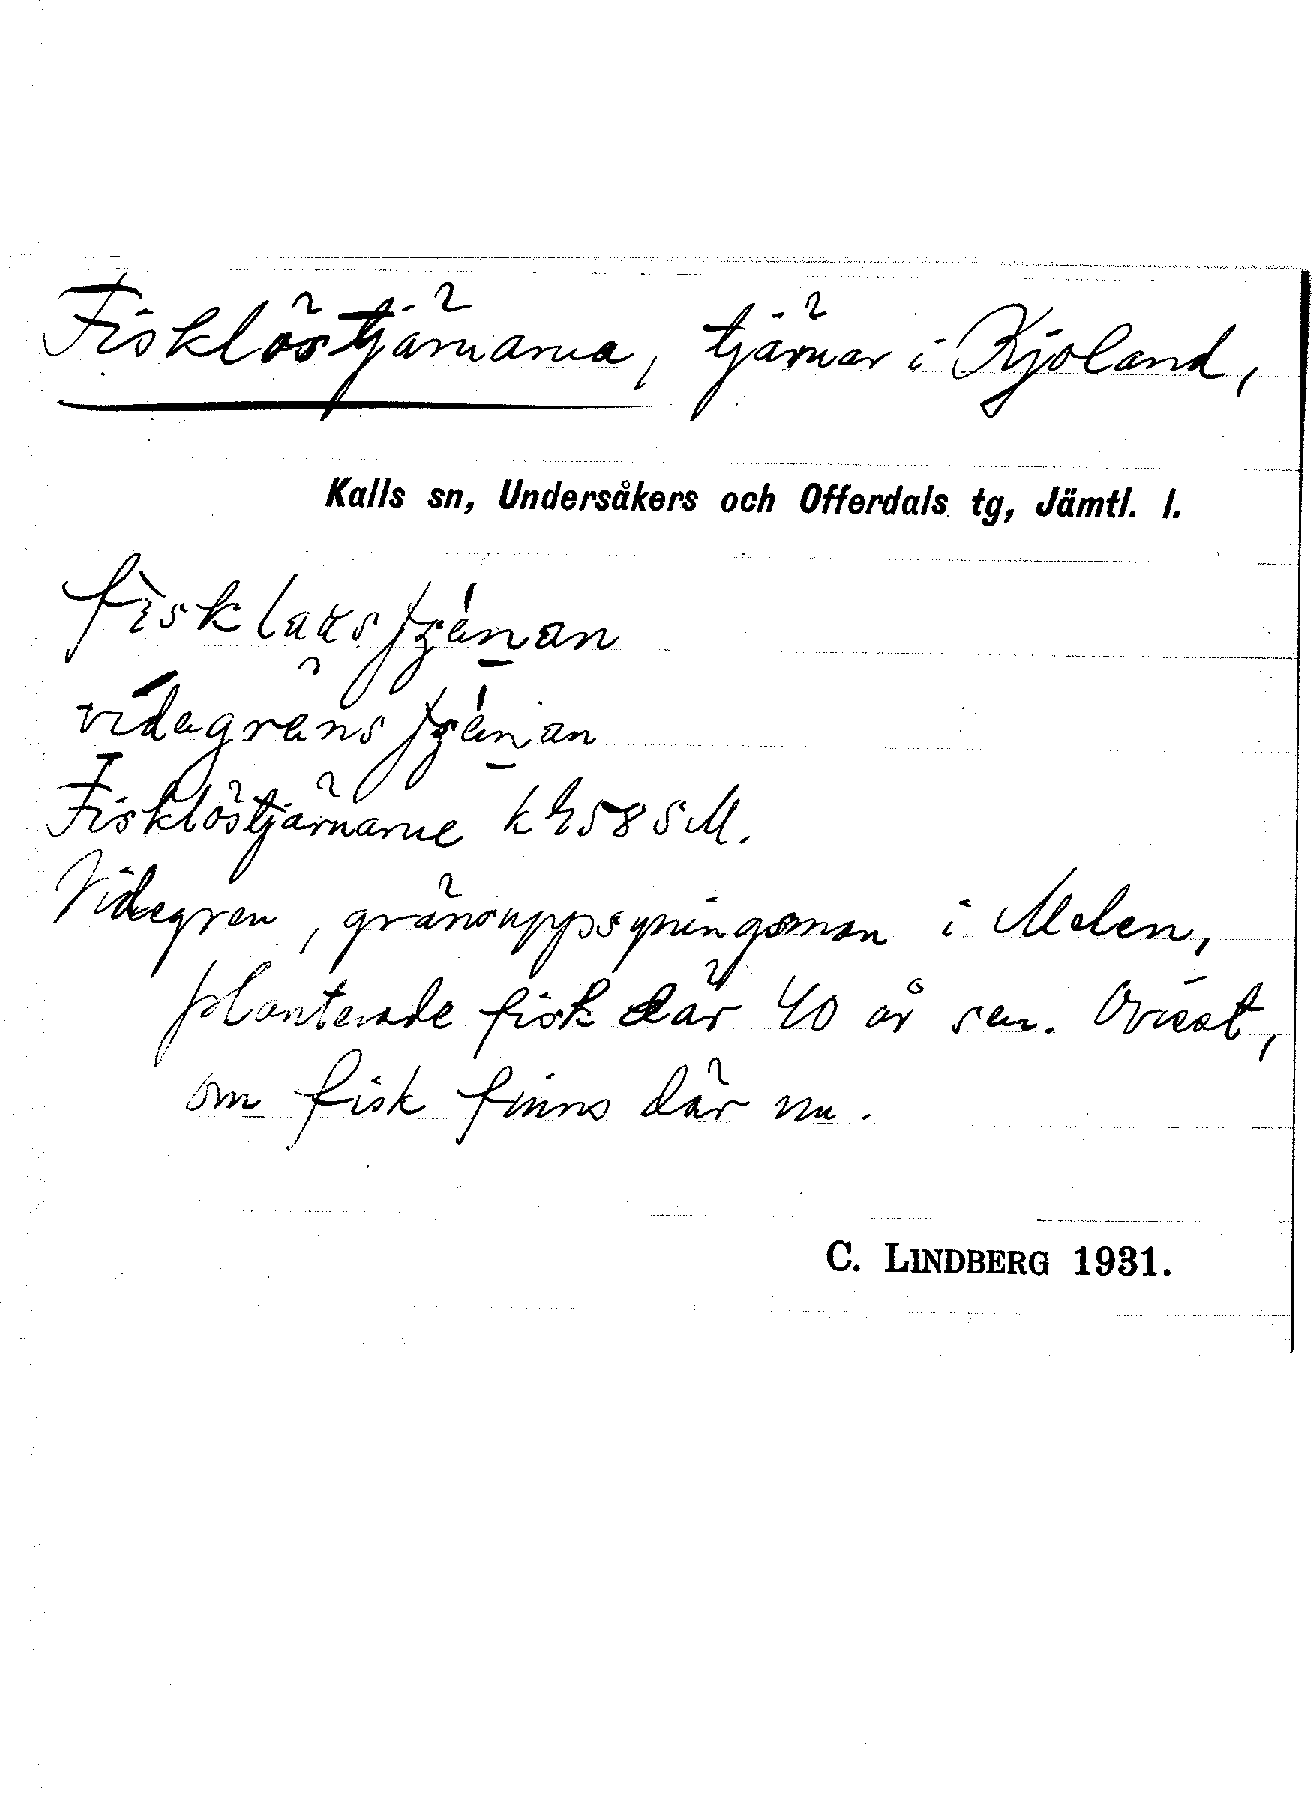 Fisklöstjärnarna, tjärnar i Kjoland,
Kalls sn, Undersåkers och Offerdals tg, Jämtl. l.
Fisklöstjärnarne k 458 SM.
Videgren, gränsuppsyningsman i Melen,
planterade fisk där 40 år sen. Ovisst,
om fisk finns där nu.
C. LINDBERG 1931.